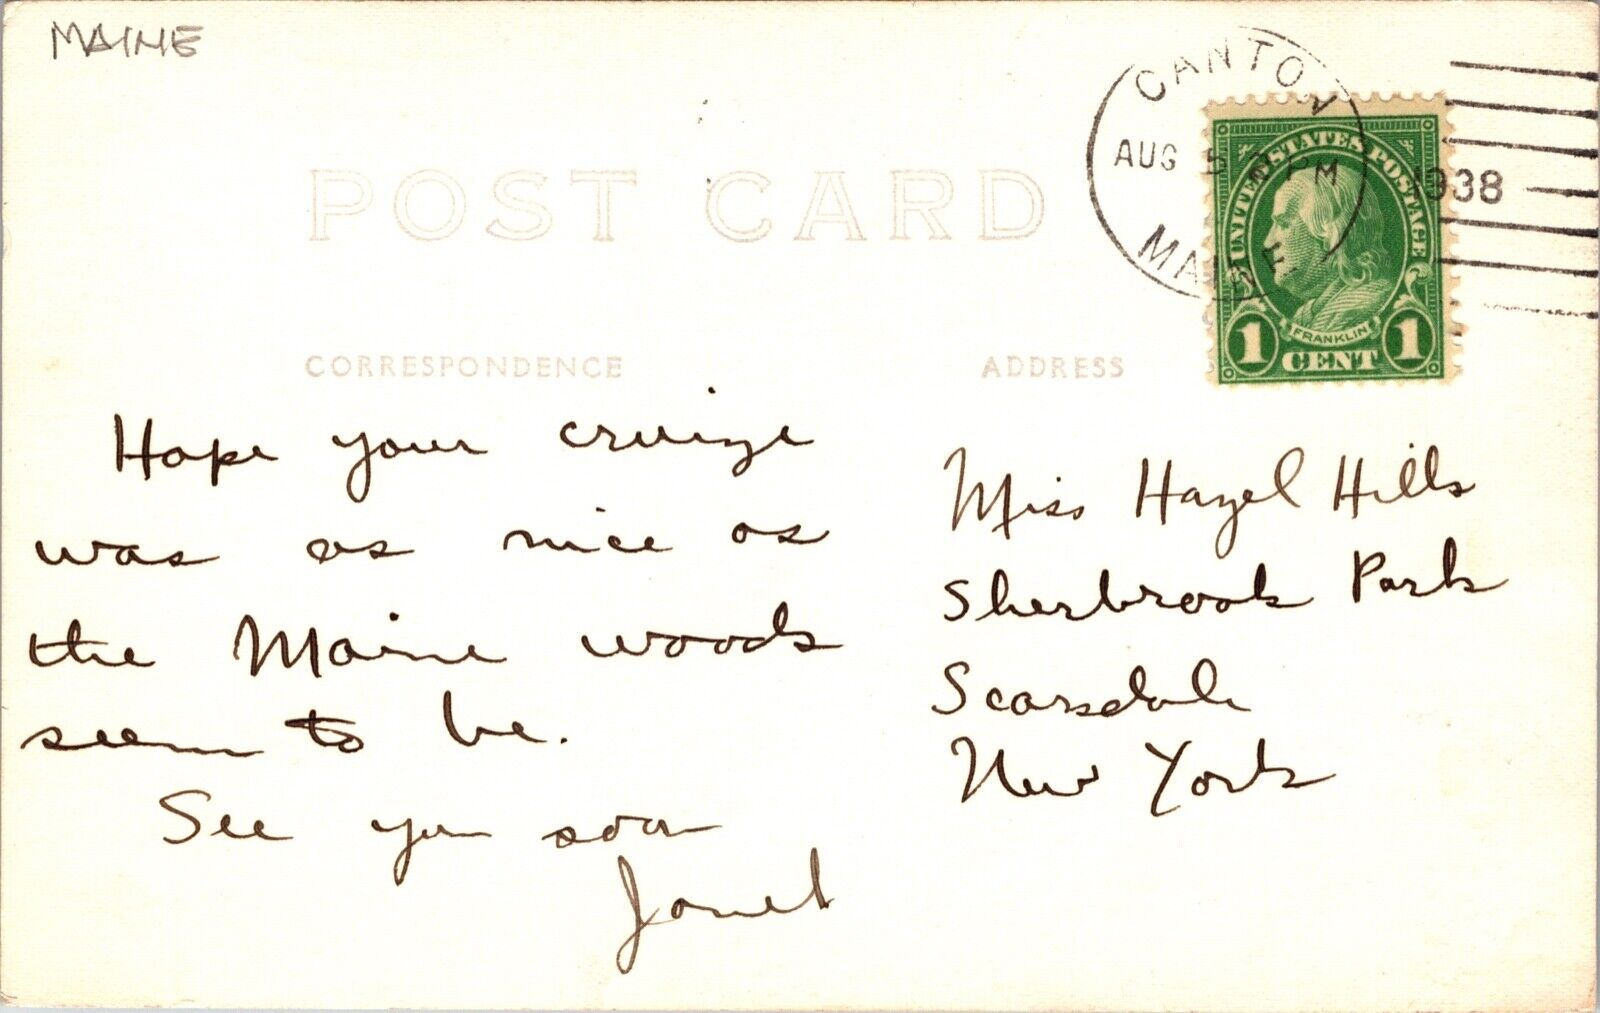 MAINE
CANTON
AUG 5 2 PM
1938
MAINE
UNITED STATES POSTAGE
FRANKLIN
1 CENT 1
POST CARD
CORRESPONDENCE
ADDRESS
Hope your cruize
was as nice as
the Maine woods
seem to be.
See you soon
Janet
Miss Hazel Hills
Sherbrook Park
Scarsdale
New York